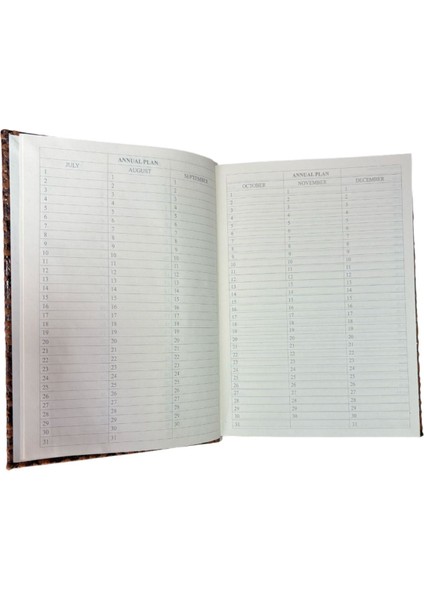 ANNUAL PLAN
JULY AUGUST SEPTEMBER
1 1 1
2 2 2
3 3 3
4 4 4
5 5 5
6 6 6
7 7 7
8 8 8
9 9 9
10 10 10
11 11 11
12 12 12
13 13 13
14 14 14
15 15 15
16 16 16
17 17 17
18 18 18
19 19 19
20 20 20
21 21 21
22 22 22
23 23 23
24 24 24
25 25 25
26 26 26
27 27 27
28 28 28
29 29 29
30 30 30
31 31
ANNUAL PLAN
OCTOBER NOVEMBER DECEMBER
1 1 1
2 2 2
3 3 3
4 4 4
5 5 5
6 6 6
7 7 7
8 8 8
9 9 9
10 10 10
11 11 11
12 12 12
13 13 13
14 14 14
15 15 15
16 16 16
17 17 17
18 18 18
19 19 19
20 20 20
21 21 21
22 22 22
23 23 23
24 24 24
25 25 25
26 26 26
27 27 27
28 28 28
29 29 29
30 30 30
31 31